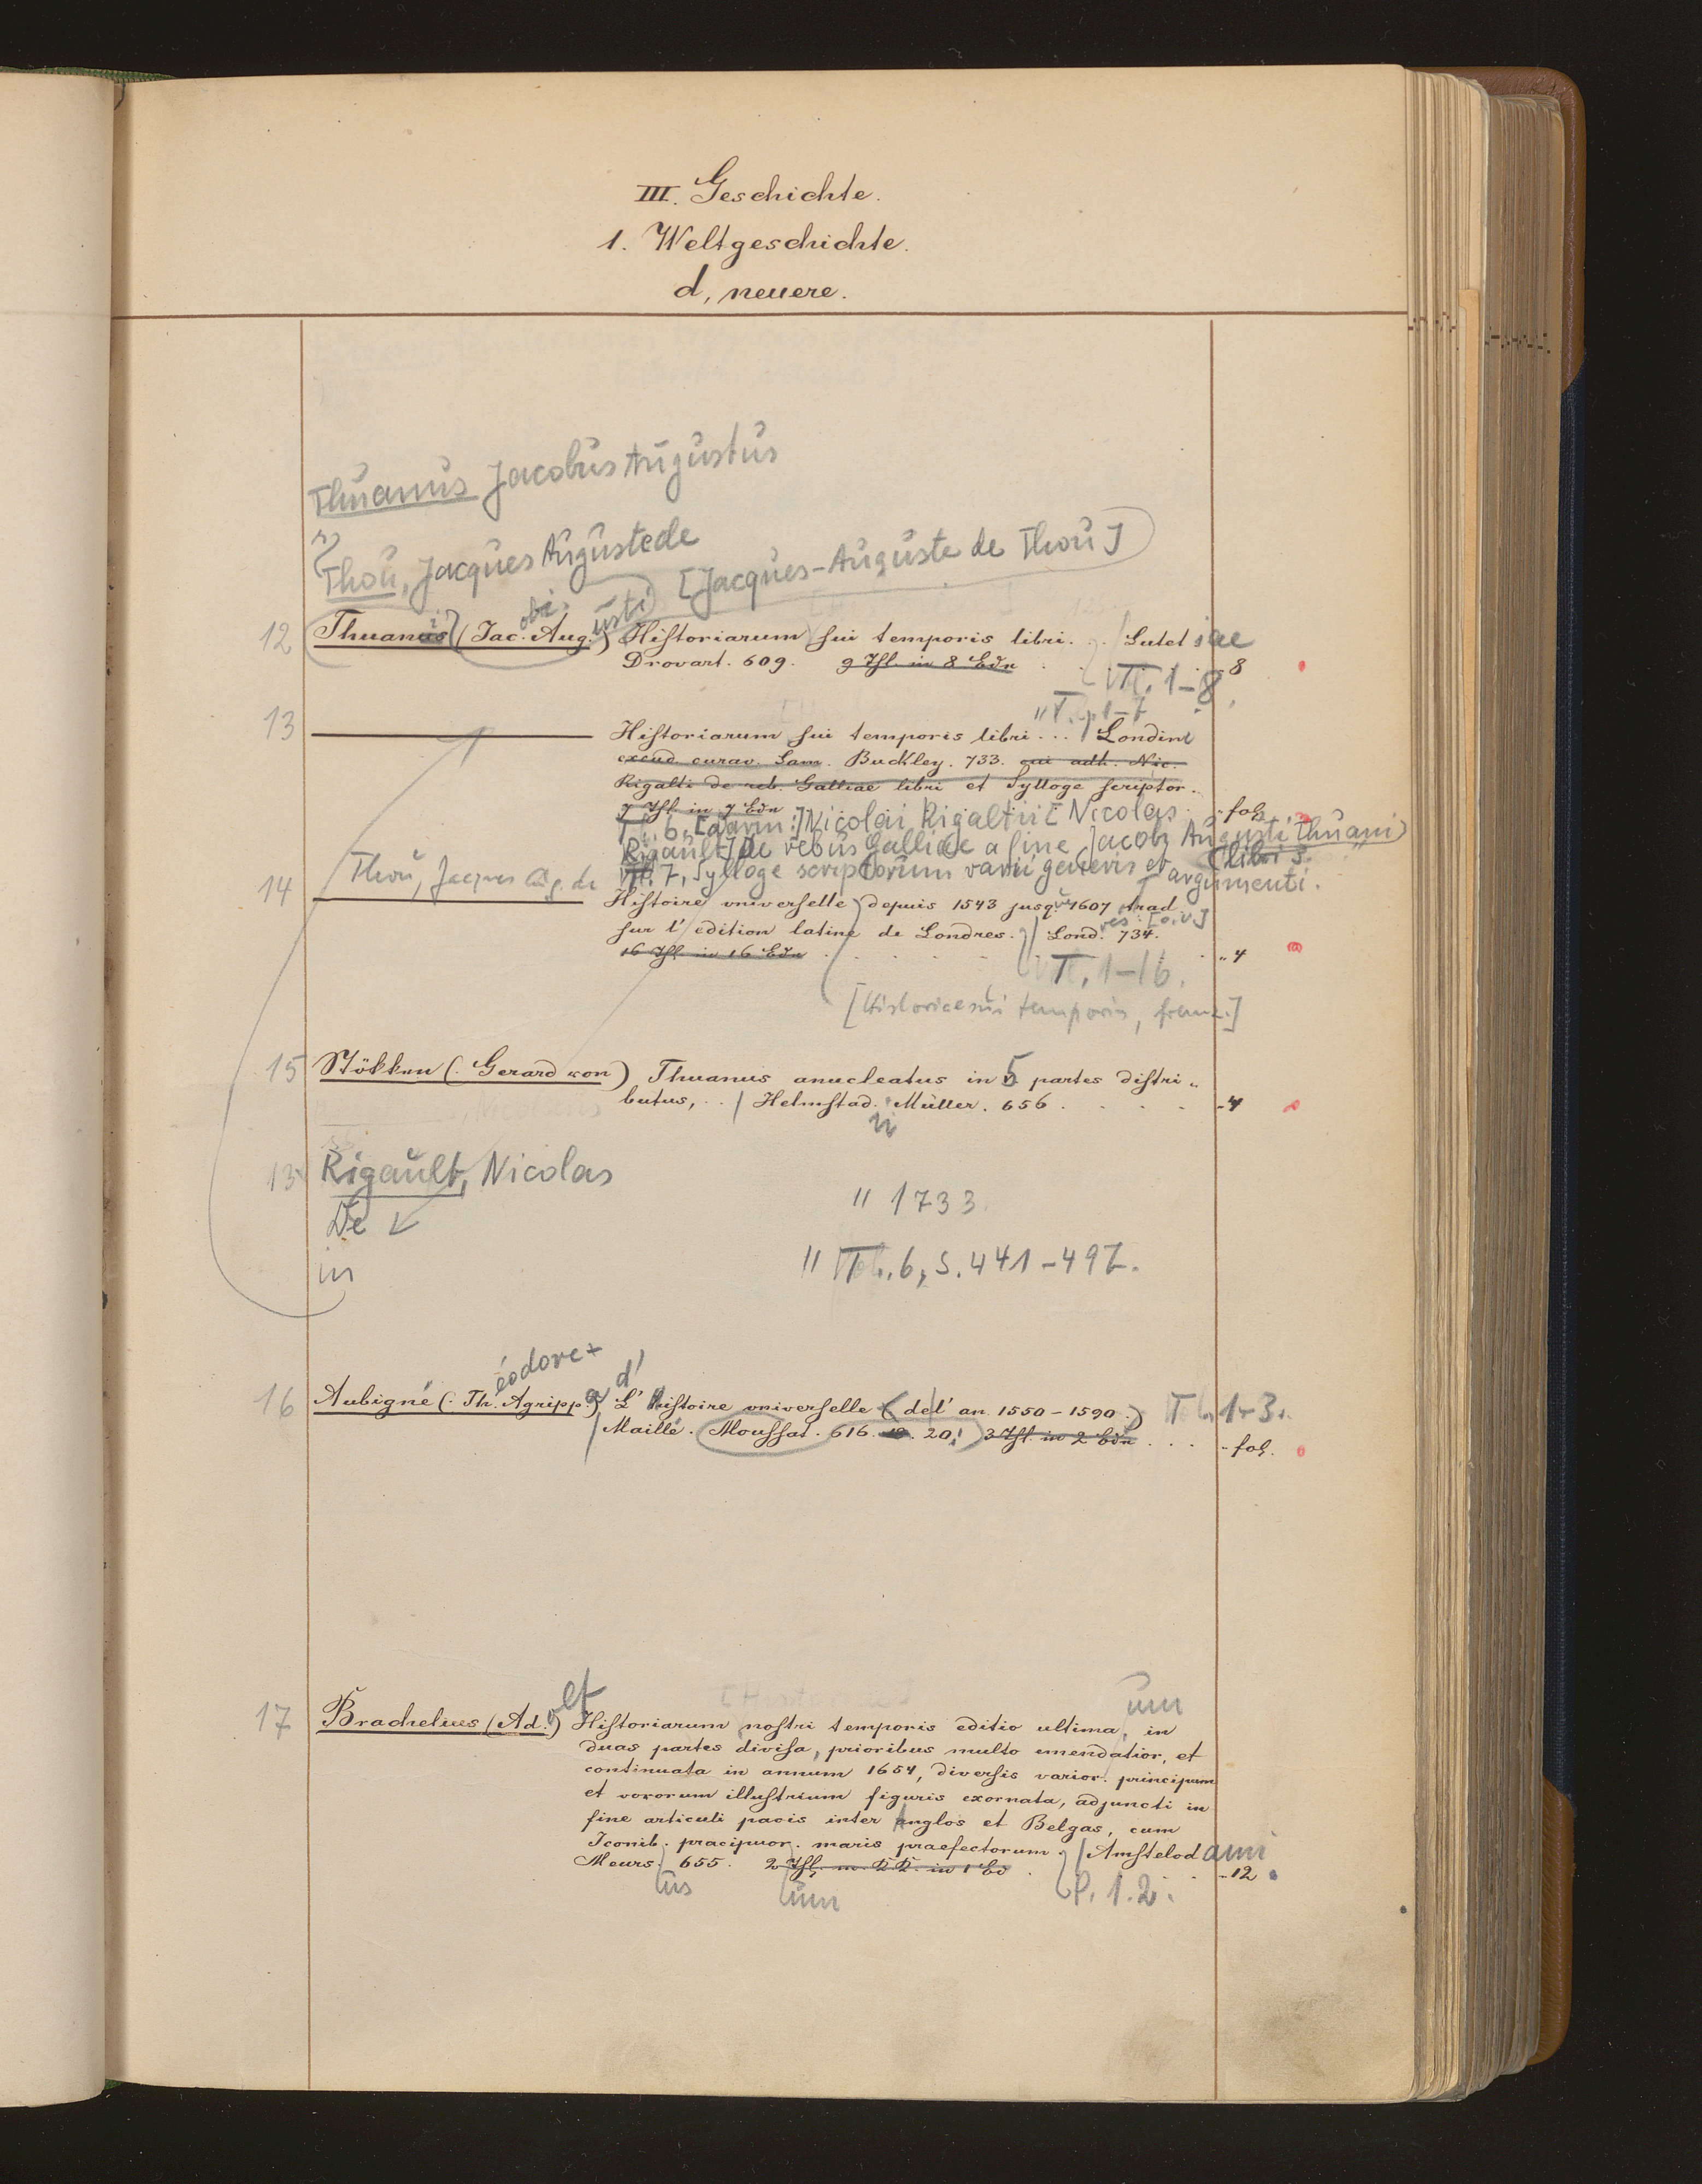 III. Geschichte.
1. Weltgeschichte.
d, neuere.
Thuanus Jacobus Augustus
Thou, Jacques Auguste de
[Jacques-Auguste de Thou]
obi. usti
12 Thuanus (Jac. Aug.) Historiarum sui temporis libri. . . / Lutet iae
Drovart. 609. 9 Thl. in 8 Bdn . . . 8
T. 1-8.
" T. 1-7
13 Historiarum sui temporis libri . . . / Londini
excud. curav. Sam. Buckley. 733. cui adh. Nic.
Rigalti de reb. Galliae libri et Sylloge scriptor.
7 Thl. in 7 Bdn . fol.
T. 6, [darin:] Nicolai Rigaltii [Nicolas
Rigault] De rebus Gallicae a fine Jacobi Augusti Thuani
libri 3.
T. 7, Sylloge scriptorum varii generis et argumenti.
14 Thou, Jacques Aug. de Histoire universelle depuis 1543 jusq. 1607 trad.
sur l' edition latine de Londres. / Lond. 734.
16 Thl. in 16 Bdn . . . . . . „ 4
T. 1-16.
[Historiae sui temporis, franz.]
15 Stökken (. Gerard von) Thuanus anucleatus in 5 partes distri„
butus, . . / Helmstad. Müller. 656 . . . . - 4
ii
13 Rigault, Nicolas
De
in
" 1733.
" T. 6, S. 441-497.
éodore d'
16 Aubigné (. Th. Agrippa) L' Histoire universelle (de l' an. 1550-1590.) T. 1-3.
/ Maille. Moussat. 616. 18. 20. 3 Thl. in 2 Bdn . . . - fol.
um
17 Brachelius (Ad.) Historiarum nostri temporis editio ultima, in
duas partes divisa, prioribus multo emendatior, et
continuata in annum 1654, diversis varior. principum
et vororum illustrium figuris exornata, adjuncti in
fine articuli pacis inter Anglos et Belgas, cum
Iconib. pracipuor. maris praefectorum. / Amstelod ami
Meurs. 655. 2 Thl. m. K K. in 1 Bd . . . - 12
ius um P. 1.2.